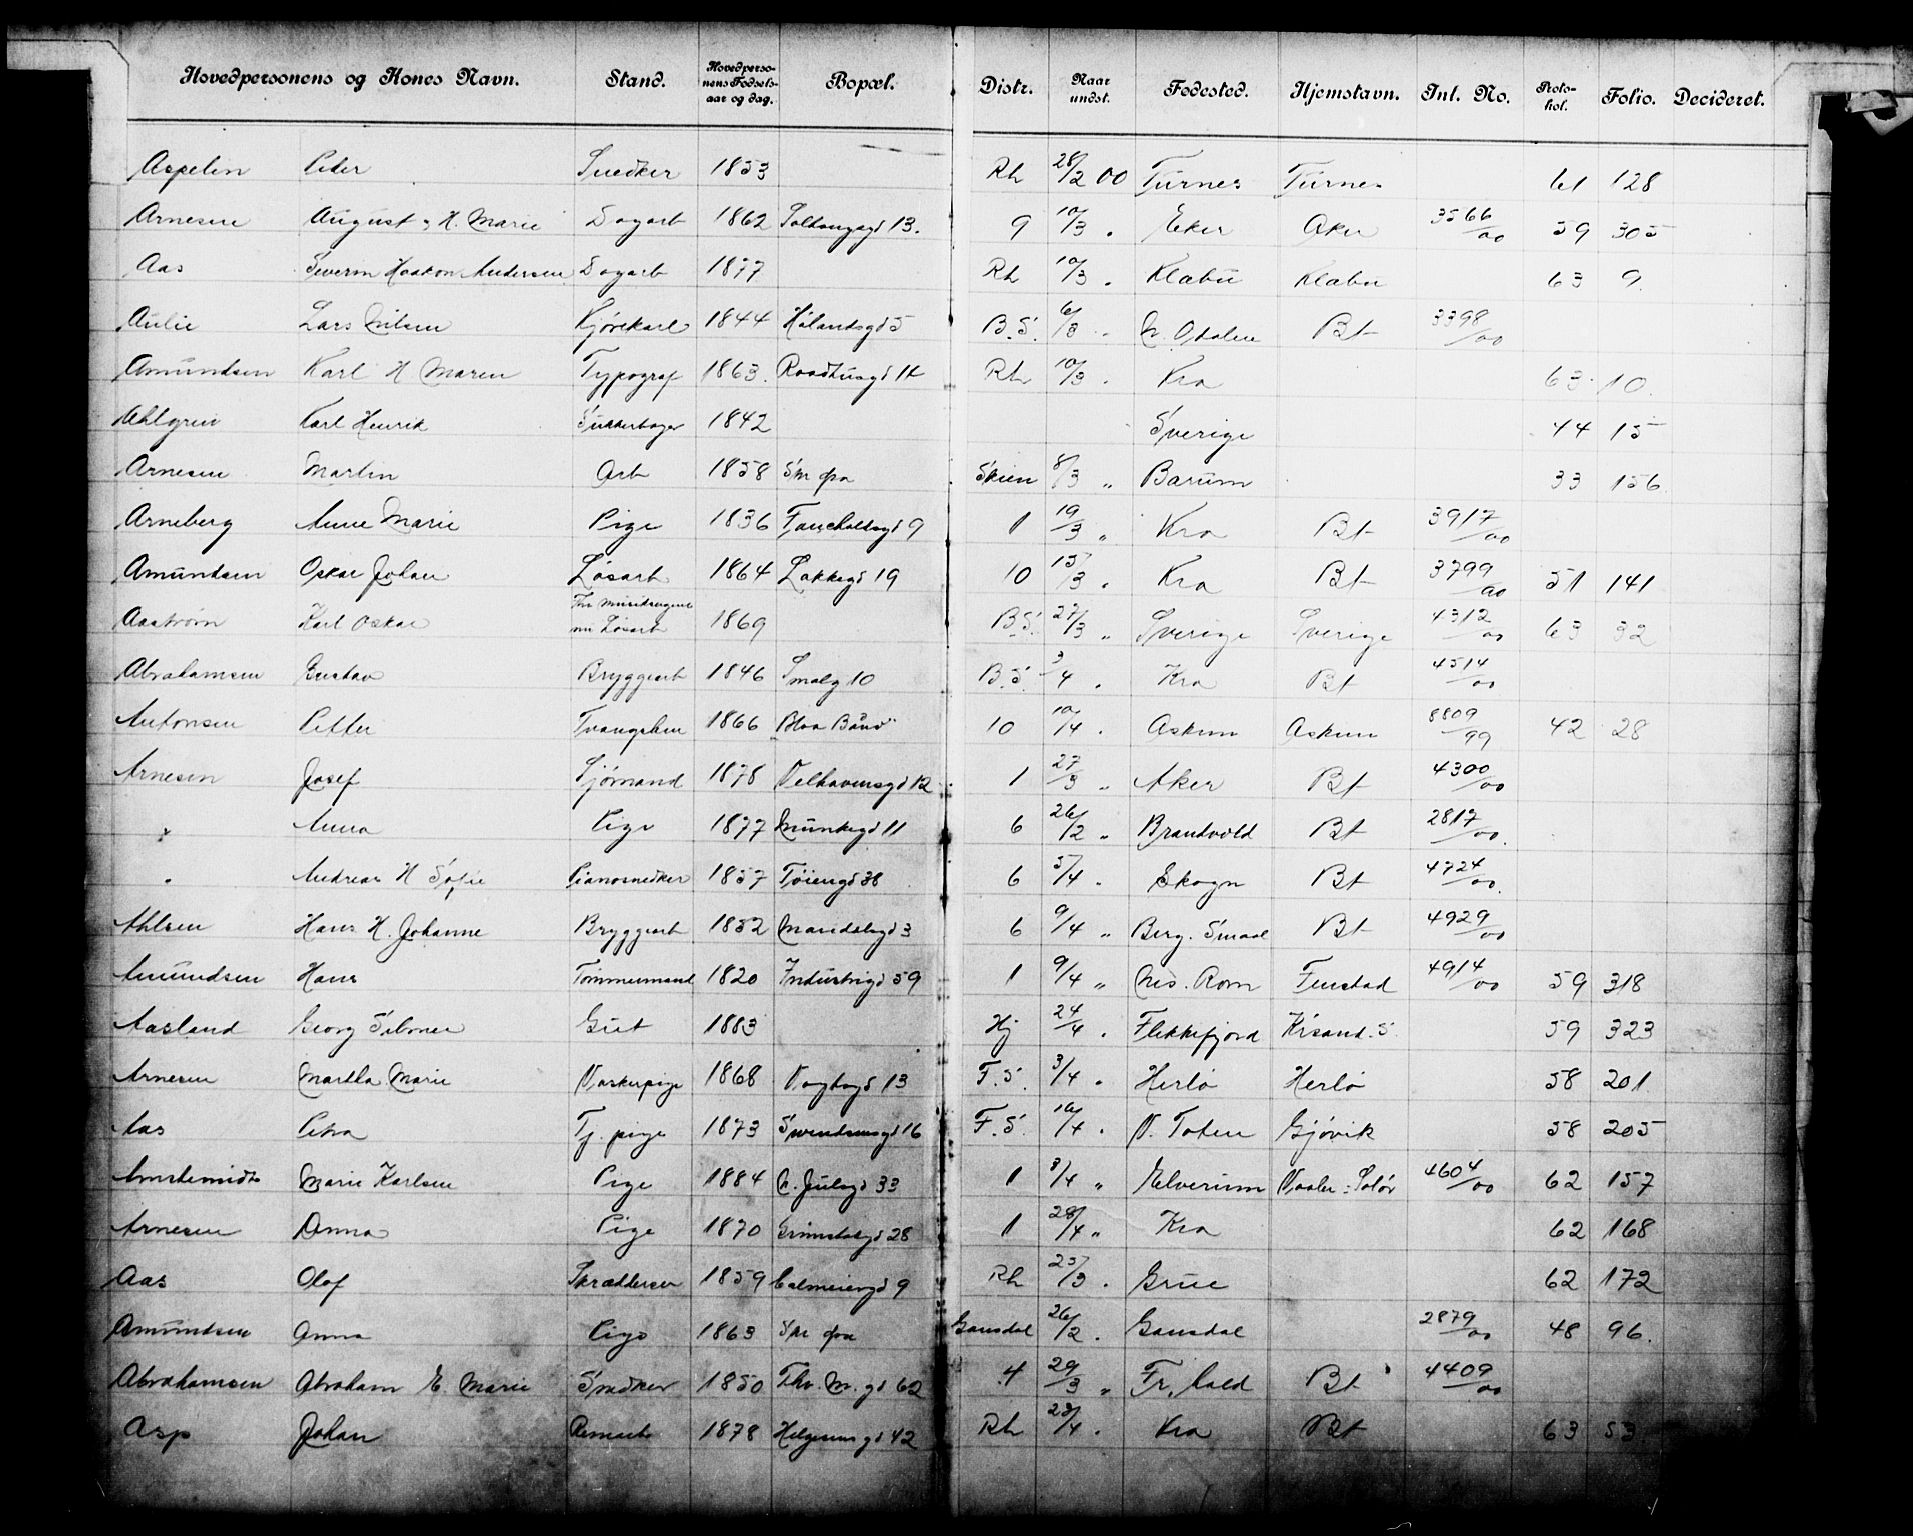 Hovedpersonens og Kones Navn. Stand. Hovedperso-nens Fødsels-aar og dag. Bopæl. Distr. Naar undst. Fødested. Hjemstavn. Inl. No. Proto-kol. Folio. Decideret.
Aspelin Peter Snedker 1853 Rh 28/2 00 Turnes Turnes 61 128
Arnesen August, H. Marie Dagarb 1862 13. 9 10/3 . Eker Aker 3566/00 59 305
Aas Severin Haakon Andersen Dagarb 1877 Rh 10/3 . Klæbu Klæbu 63 9
Aulie Lars Nilsen Kjørekarl 1844 Hølandsgd 5 B.S. 6/3 . N. Odalen Bt 3398/00
Amundsen Karl H Maren Typograf 1863. Raadhusgd 14 Rh 10/3 . Kra 63 . 10.
Ahlgren Karl Henrik Sukkerbager 1842 Sverige 44 15
Arnesen Martin Arb 1858 Spr fra Skien 8/3 " Bærum 33 156
Arneberg Anne Marie Pige 1836 Fauchaldsgd 9 1 19/3 " Kra Bt 3917/00
Amundsen Oskar Johan Løsarb 1864 Løkkegd 19 10 15/3 . Kra Bt 3799/00 51 141
Aastrøm Karl Oskar nu Løsarb 1869 B.S. 27/3 " Sverige Sverige 4312/00 63 32
Abrahamsen Gustav Bryggearb 1846 Smalg 10 B.S. 3/4 . Kra Bt 4514/00
Antonsen Petter 1866 Blaa Baand 10 10/4 . Askim Askim 8809/99 42 28
Arnesen Josef Sjømand 1878 Velhavensgd 12 1 27/3 " Aker Bt 4300/00
" Anna Pige 1877 Munkegd 11 6 26/2 " Brandvold Bt 2817/00
" Andreas H Sofie Pianosnedker 1857 Tøiengd 38 6 5/4 . Skogn Bt 4724/00
Ahlsen Hans H. Johanne Bryggearb 1852 Maridalsgd 3 6 9/4 " Berg. Smaal Bt 4929/00
Amundsen Hans Tømmermand 1820 Industrigd 59 1 9/4 " Nes. Rom Fenstad 4914/00 59 318
Aasland Georg Gut 1883 Hj 24/4 . Flekkefjord Krsand. S. 59 323
Arnesen Martha Marie Vaskepige 1868 Vogtsgd 13 F.S. 3/4 " Herlø Herlø 58 201
Aas Petra Tj. pige 1873 Svendsensgd 16 F.S. 16/4 . V. Toten Gjøvik 58 205
Marie Karlsen Pige 1884 N. Julsgd 33 1 3/4 " Elverum Vaaler - Solør 4604/00 62 157
Arnesen Anna Pige 1870 Grimstadgd 28 1 28/4 " Kra 62 168
Aas Olaf Skræddersv 1859 Calmeiergd 9 Rh 25/3 . Grue 62 172
Amundsen Anna Pige 1863 Spr fra Gausdal 26/2 . Gausdal 2879/00 48 96.
Abrahamsen Abraham E Marie Snedker 1850 Thv. M. gd 62 4 29/3 " Fr. hald Bt 4409/00
Asp Johan Remarb 1878 Helgesensgd 42 Rh 23/4 . Kra Bt 63 53